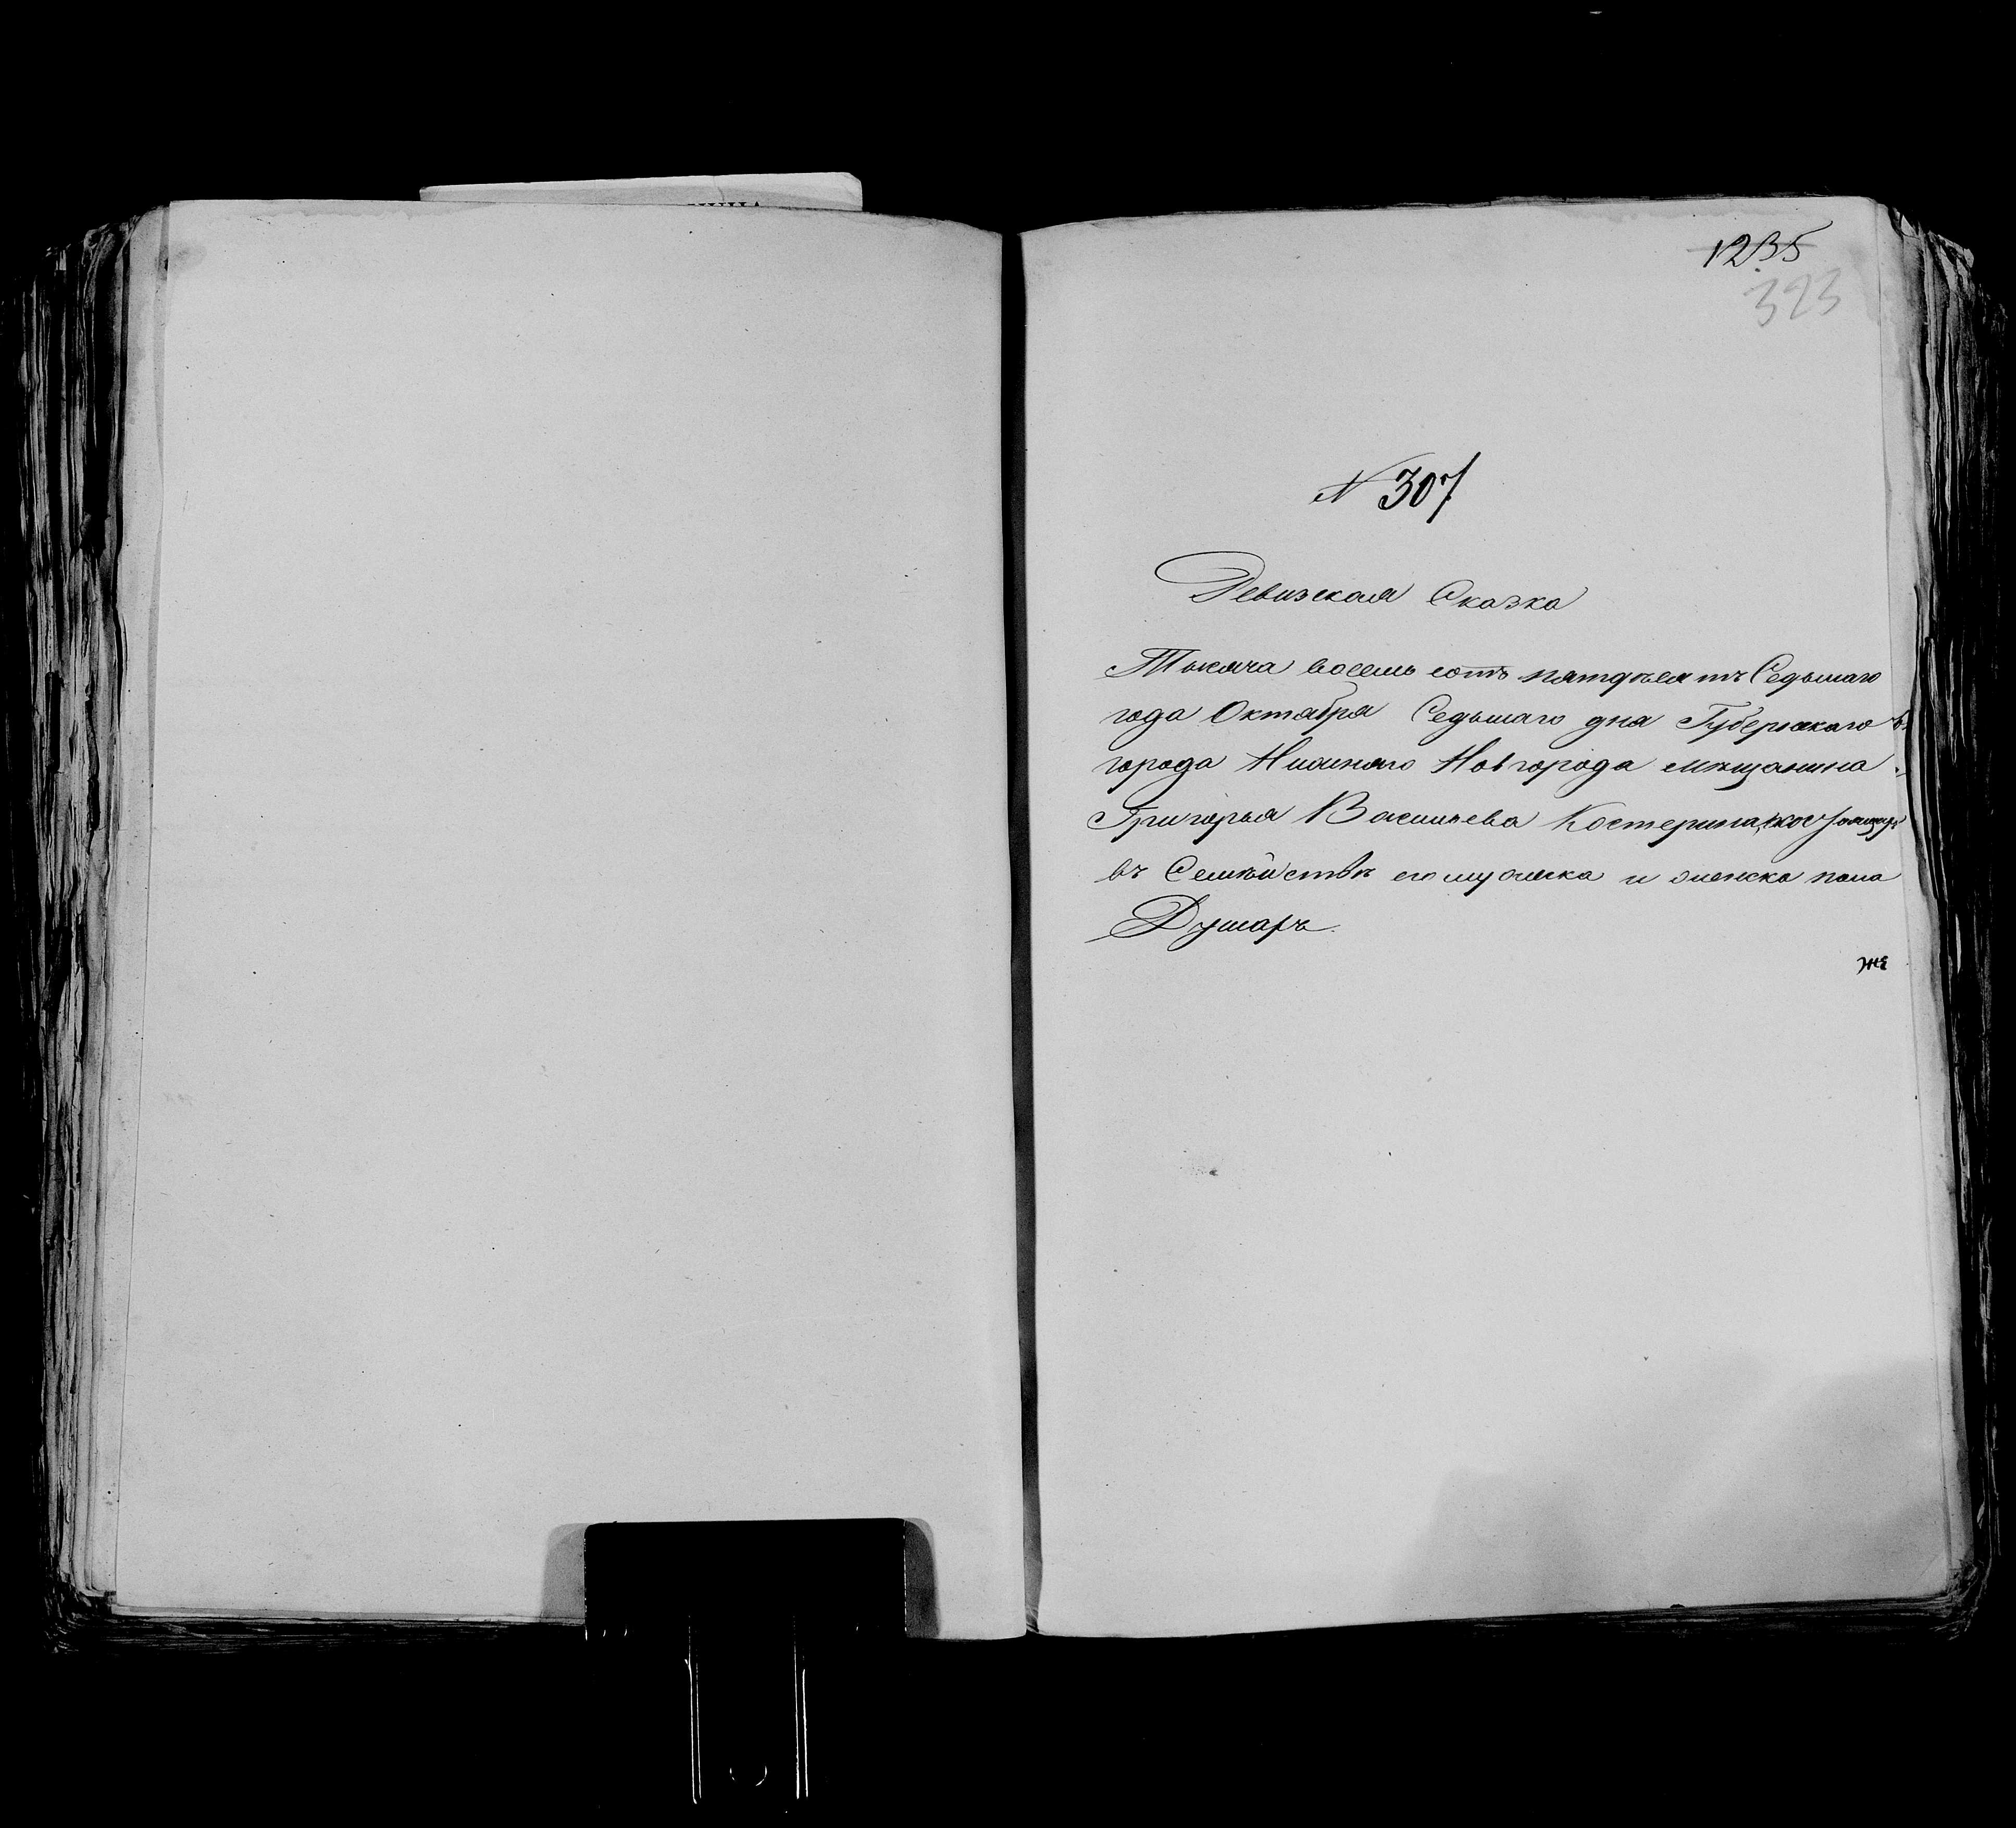 1235
323
N 307
Ревизская Сказка
Тысяча восемь сотъ пятдѣсятъ Седьмаго
года Октября Седьмаго дня Губернскаго
города Нижняго Новгорода мѣщанина
Григорья Васильева Костерина,
въ Семѣйствѣ его мужеска и женска пола
Душахъ.
же